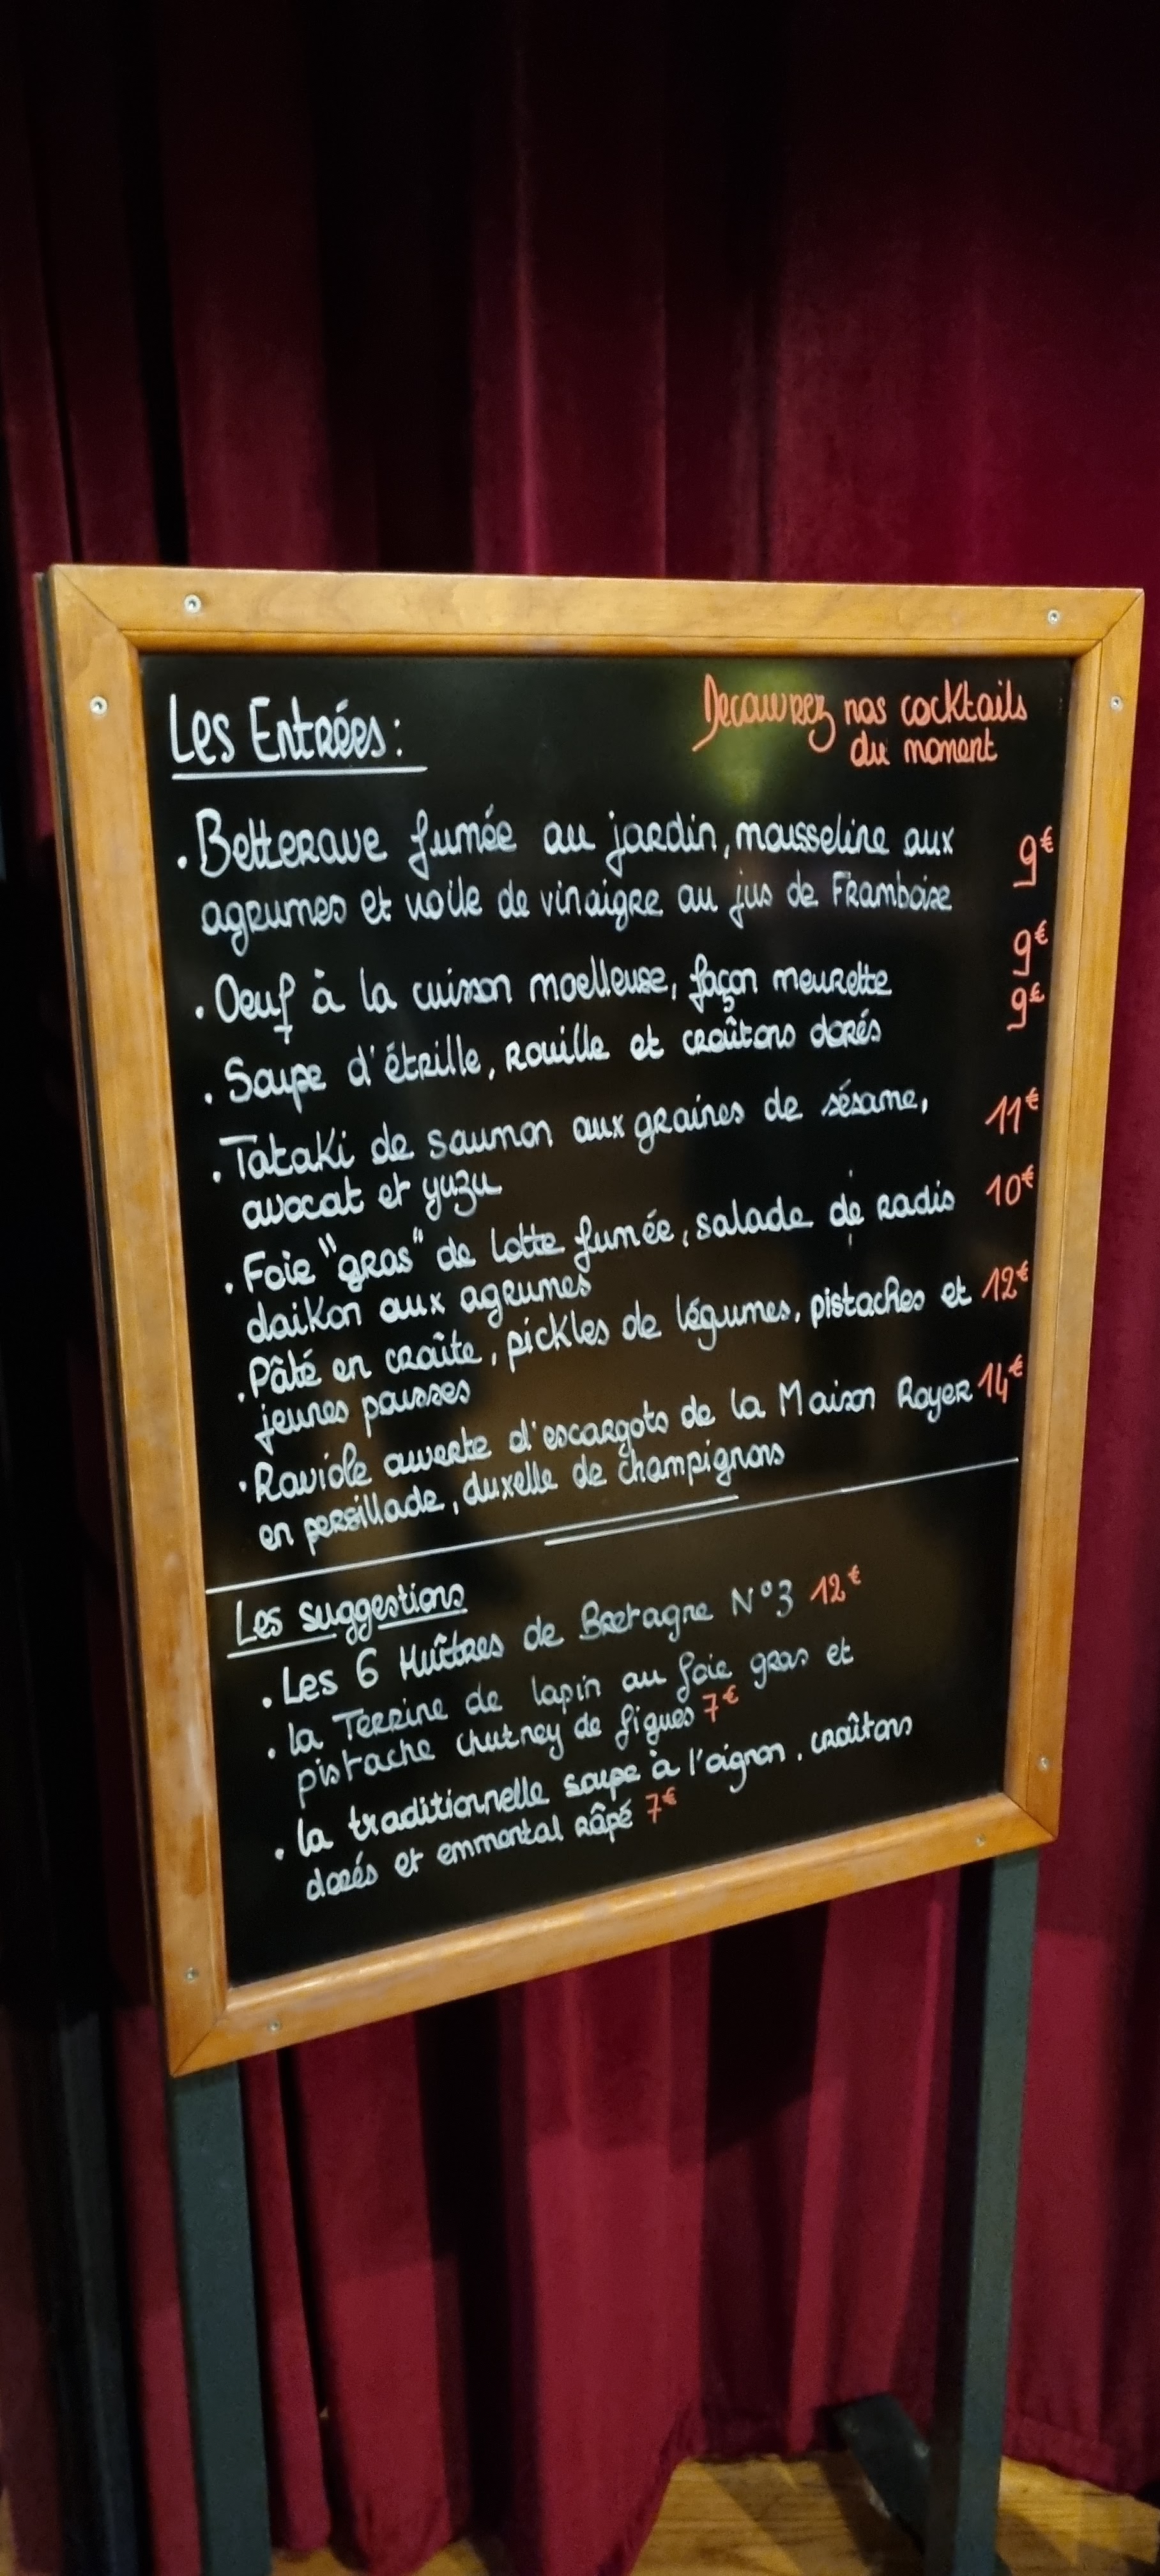 Les Entrées :
Decouvrez nos cocktails
du moment
• Betterave fumée au jardin, mousseline aux
agrumes et voile de vinaigre au jus de Framboise 9€
• Oeuf à la cuisson moelleuse, façon meurette 9€
• Soupe d'étrille, rouille et croûtons dorés 9€
• Tataki de saumon aux graines de sésame, 11€
avocat et yuzu
• Foie "gras" de lotte fumée, salade de radis 10€
daikon aux agrumes
• Pâté en croûte, pickles de légumes, pistaches et 12€
jeunes pousses
• Raviole ouverte d'escargots de la Maison Royer 14€
en persillade, duxelle de champignons
Les suggestions
• Les 6 Huîtres de Bretagne N°3 12€
• la Terrine de lapin au foie gras et
pistache chutney de figues 7€
• la traditionnelle soupe à l'oignon, croûtons
dorés et emmental râpé 7€